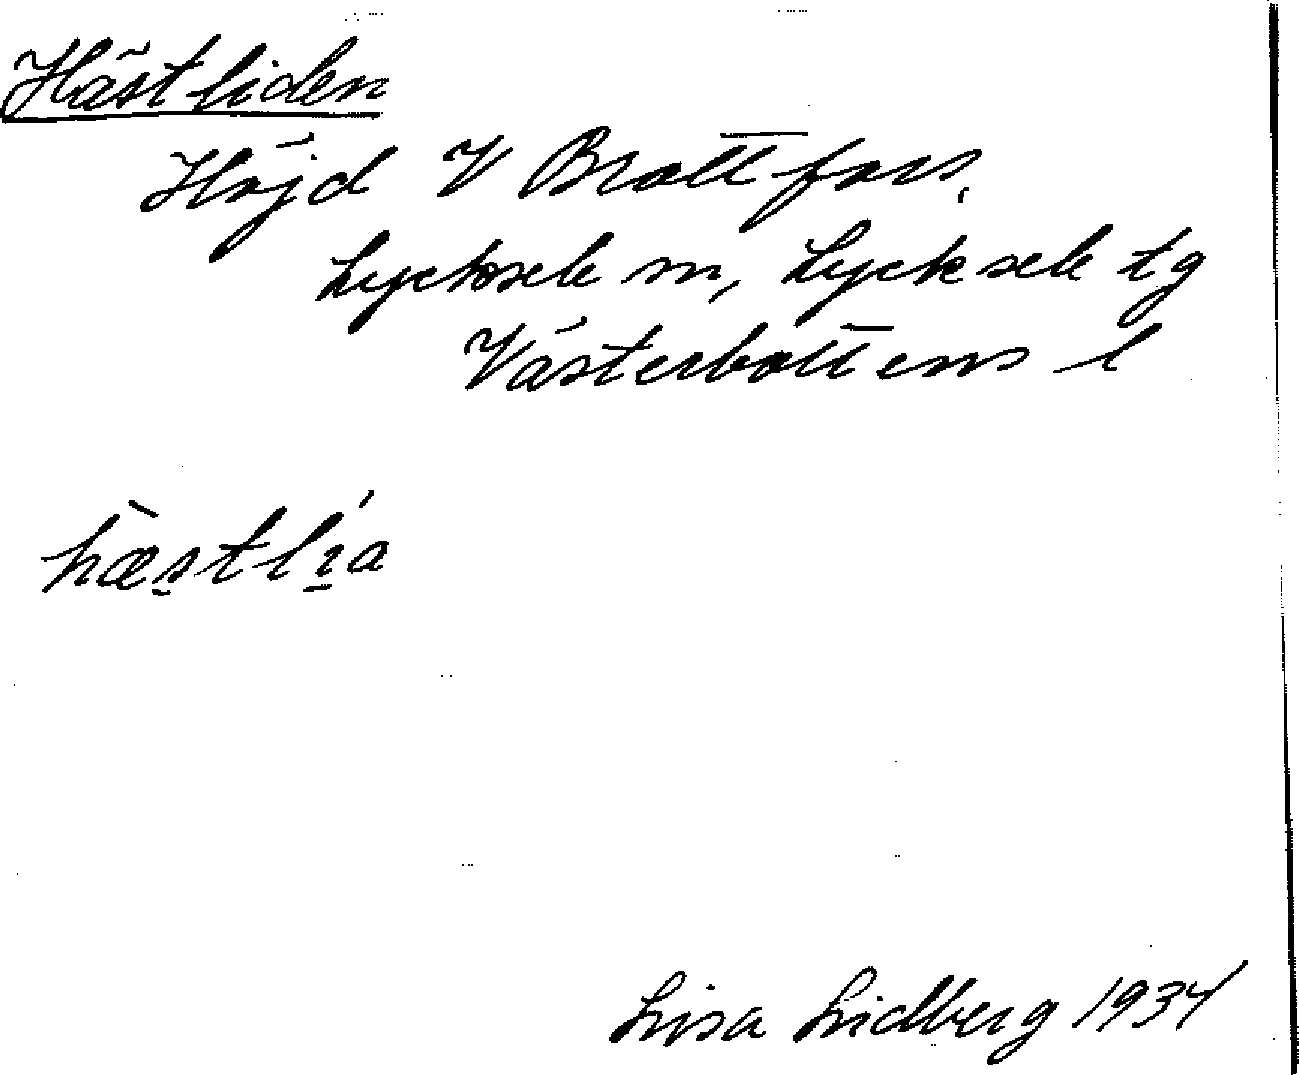 Hästliden
Höjd V Brattfors,
Lycksele sn, Lycksele tg
Västerbottens l
hæ̀st̲lı̲́a
Lisa Lidberg 1934